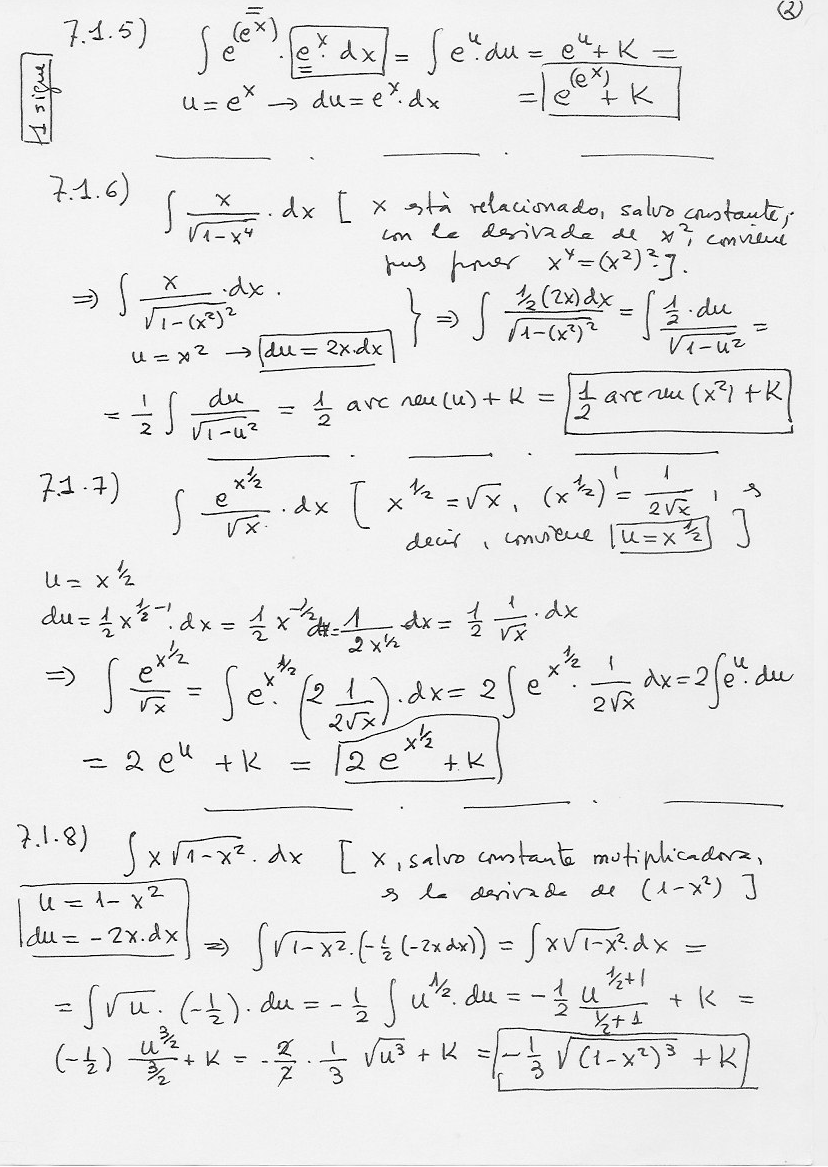 (2)
7.1.5) ∫ e^(e^x) · e^x · dx = ∫ e^u · du = e^u + K =
1 sigue
u = e^x → du = e^x · dx = e^(e^x) + K
7.1.6) ∫ x/√(1-x⁴) · dx [ x está relacionado, salvo constante,
con la derivada de x², conviene
pues poner x⁴ = (x²)² ].
⇒ ∫ x/√(1-(x²)²) · dx . } ⇒ ∫ ½(2x)dx/√(1-(x²)²) = ∫ ½·du/√(1-u²) =
u = x² → du = 2x·dx
= 1/2 ∫ du/√(1-u²) = 1/2 arc sen(u) + K = 1/2 arc sen (x²) + K
7.1.7) ∫ e^(x^½)/√x · dx [ x^½ = √x, (x^½)' = 1/(2√x), es
decir, conviene u = x^½ ]
u = x^½
du = ½ x^(½-1) · dx = ½ x^(-½) dx = 1/(2x^½) dx = ½ 1/√x · dx
⇒ ∫ e^(x^½)/√x = ∫ e^(x^½) · (2 1/(2√x)) · dx = 2∫ e^(x^½) · 1/(2√x) dx = 2∫e^u · du
= 2 e^u + K = 2 e^(x^½) + K
7.1.8) ∫ x√(1-x²) · dx [ x, salvo constante mutiplicadora,
es la derivada de (1-x²) ]
u = 1-x²
du = -2x·dx ⇒ ∫√(1-x²)·(-½(-2xdx)) = ∫x√(1-x²)·dx =
= ∫√u · (-½) · du = -½ ∫ u^½ · du = -½ u^(½+1)/(½+1) + K =
(-½) u^(3/2)/(3/2) + K = -2/2 · 1/3 √u³ + K = -1/3 √((1-x²)³) + K